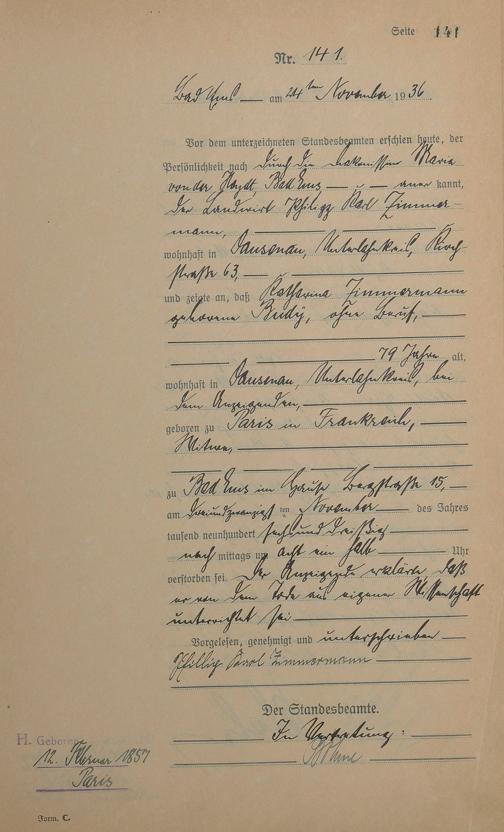 Seite 141
Nr. 141.
Bad Ems — am 24ten November 1936.
Vor dem unterzeichneten Standesbeamten erschien heute, der
Persönlichkeit nach durch die Diakonissin Maria
von der Heydt, Bad Ems — — aner kannt,
der Landwirt Philipp Karl Zimmer-
mann,
wohnhaft in Dausenau, Unterlahnkreis, Kirch-
straße 63,
und zeigte an, daß Katharina Zimmermann
geborene Rudy, ohne Beruf,
79 Jahre alt,
wohnhaft in Dausenau, Unterlahnkreis, bei
dem Anzeigenden,
geboren zu Paris in Frankreich,
Witwe,
zu Bad Ems im Hause Bergstraße 15,
am dreiundzwanzigsten November des Jahres
tausend neunhundert sechsunddreißig
nach mittags um acht ein halb Uhr
verstorben sei. Der Anzeigende erklärte, daß
er von dem Tode aus eigener Wissenschaft
unterrichtet sei
Vorgelesen, genehmigt und unterschrieben
Phillip Karl Zimmermann
Der Standesbeamte.
In Vertretung:
H. Geboren
12. Februar 1857
Paris
Form. C.